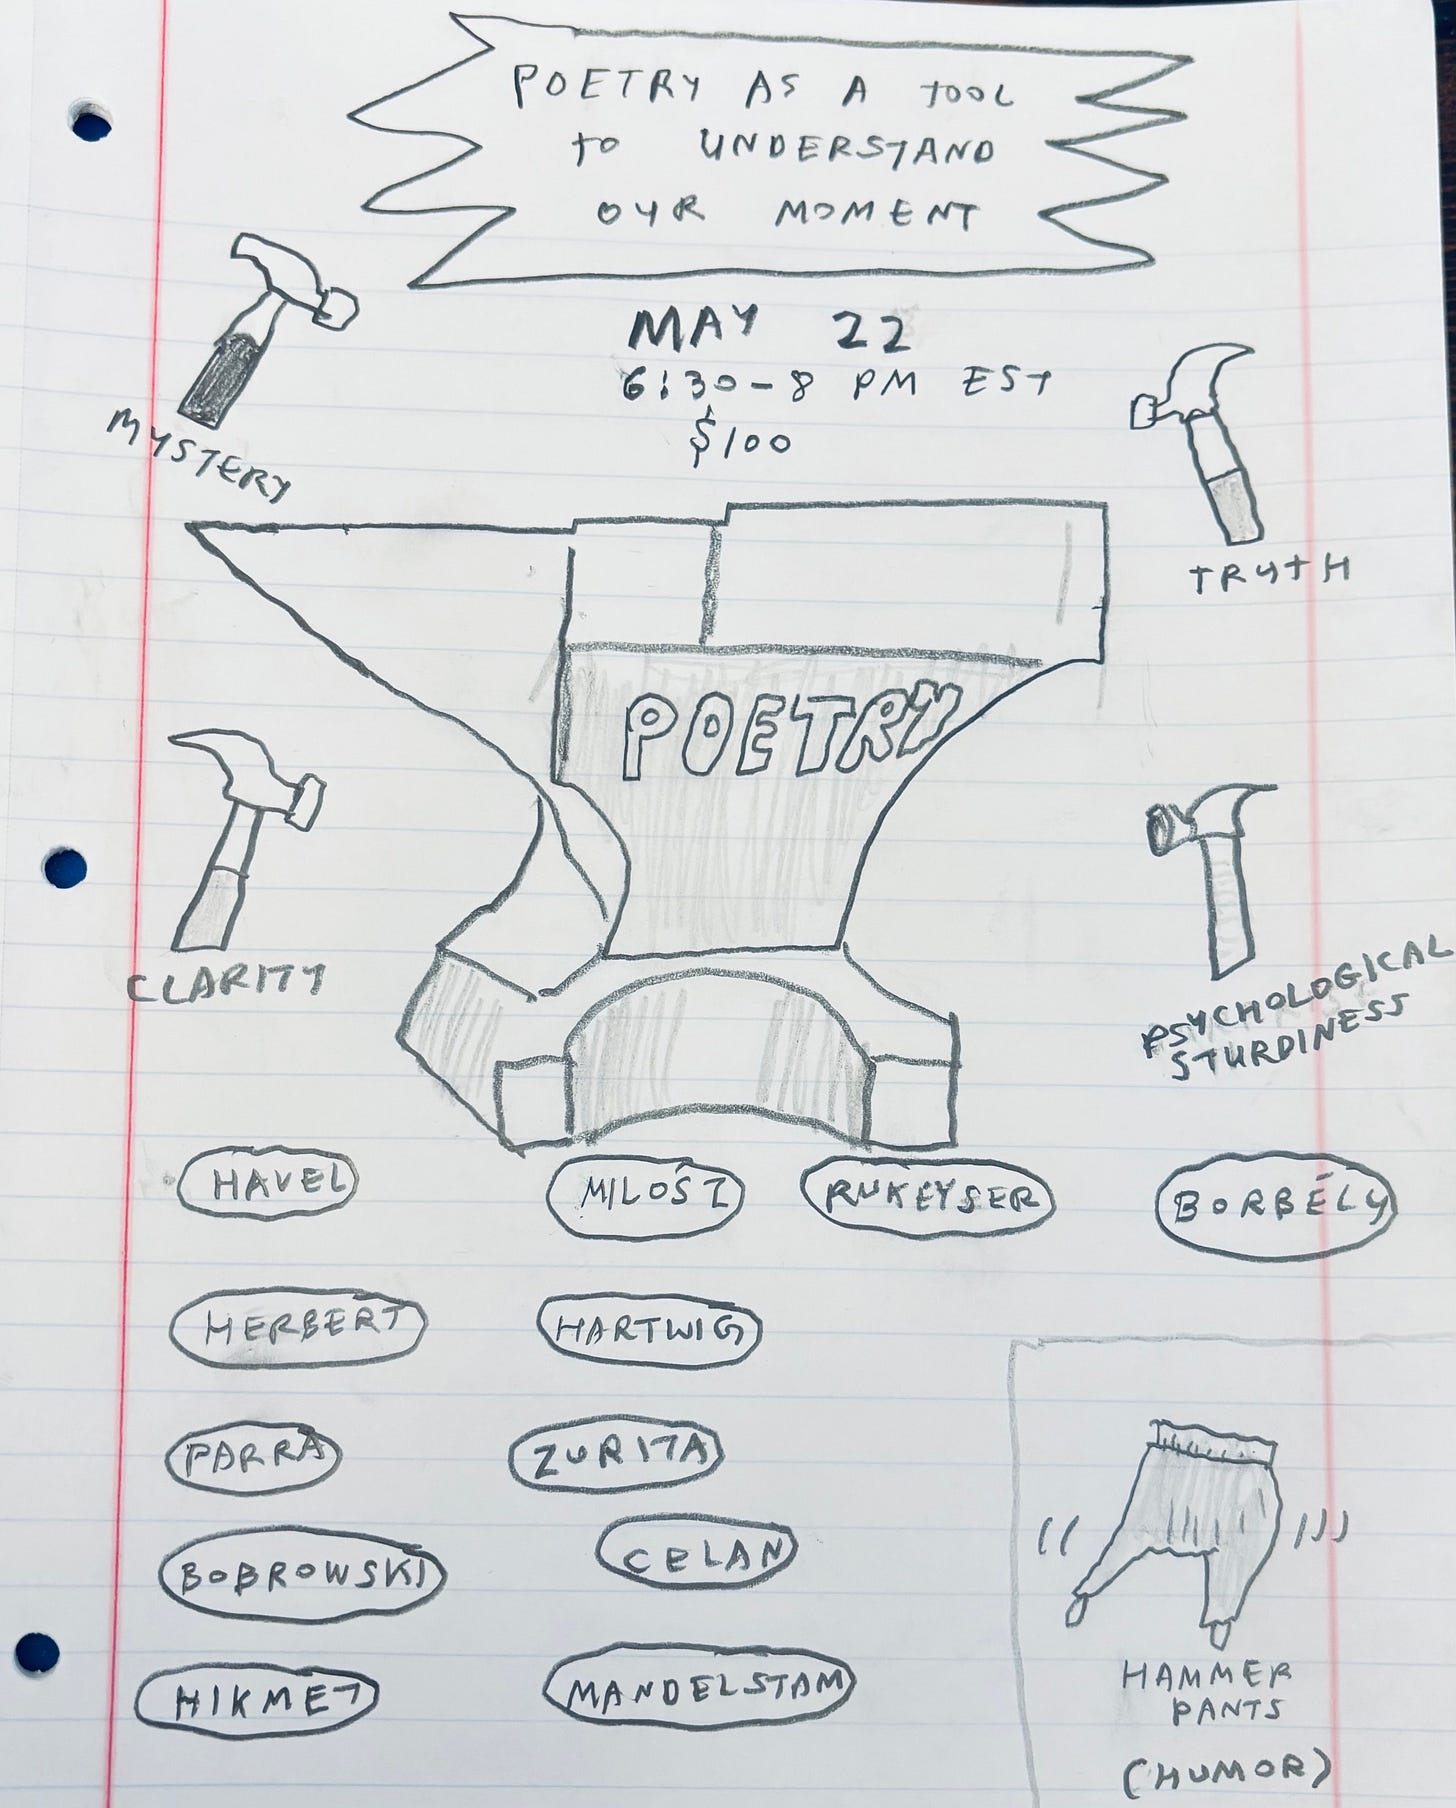 POETRY AS A TOOL
TO UNDERSTAND
OUR MOMENT
MAY 22
6:30-8 PM EST
$100
MYSTERY
TRUTH
POETRY
CLARITY
PSYCHOLOGICAL
STURDINESS
HAVEL
MILOSZ
RUKEYSER
BORBÉLY
HERBERT
HARTWIG
PARRA
ZURITA
BOBROWSKI
CELAN
HIKMET
MANDELSTAM
HAMMER
PANTS
(HUMOR)